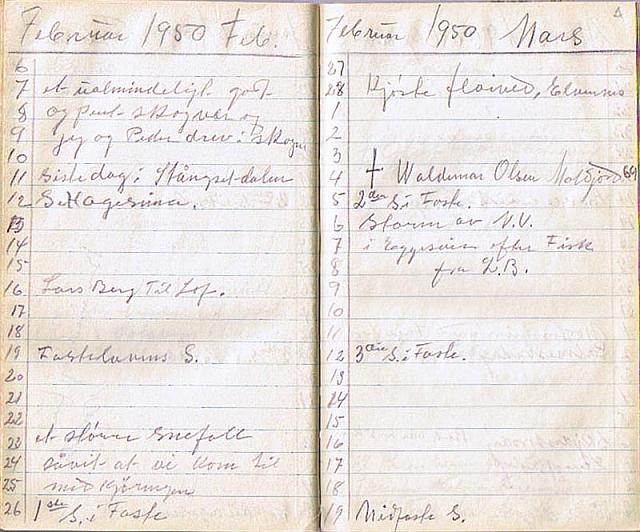 Februar 1950 Feb.
6
7 et ualmindeligt godt
8 og pent skogvær og
9 jeg og Peder drev i skogen
10
11 siste dag i Stångset-dalen
12 S.
13
14
15
16 Lars Berg til Lof.
17
18
19 Fastelavns S.
20
21
22
23 et større snefall
24 såvit at vi kom til
25 med kjøringen
26 1ste S. i Faste
Februar 1950 Mars
27
28 Kjøpte
1
2
3
4 † Waldemar Olsen 69
5 2den S. i Faste.
6 Storm av N.V.
7 i Eggesvien efter Fisk
8 fra L.B.
9
10
11
12 3die S. i Faste.
13
14
15
16
17
18
19 Midfaste S.